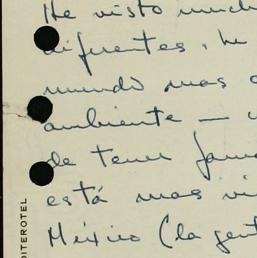 He visto much
diferentes, h
mundo mas
ambiente —
de tener fam
está mas vi
México (la gent
DITEROTEL